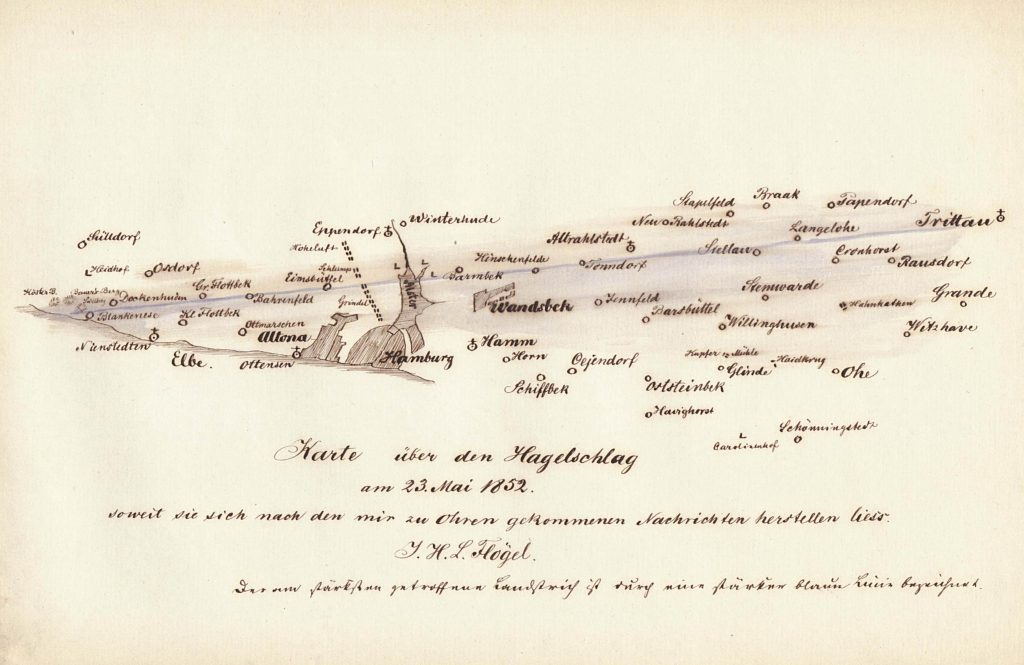 Stapelfeld
Braak
Papendorf
Trittau
Winterhude
Eppendorf
Neu Rahlstedt
Langelohe
Sülldorf
Hoheluft
Altrahlstedt
Stellau
Cronhorst
Rausdorf
Heidhof
Osdorf
Schlump
Eimsbüttel
Barmbek
Hinschenfelde
Tonndorf
Bauer's Berg
Dockenhuden
Gr. Flottbek
Bahrenfeld
Grindel
Alster
Wandsbek
Jennfeld
Stemwarde
Hahnkathen
Grande
Blankenese
Kl. Flottbek
Ottmarschen
Barsbüttel
Willinghusen
Witzhave
Nienstedten
Altona
Hamm
Elbe.
Ottensen
Hamburg
Horn
Oejendorf
Kupfer Mühle
Glinde
Haidkrug
Ohe
Schiffbek
Oststeinbek
Havighorst
Schönningstedt
Carolinenhof
Karte über den Hagelschlag
am 23. Mai 1852.
soweit sie sich nach den mir zu Ohren gekommenen Nachrichten herstellen liess.
J. H. L. Flögel.
Der am stärksten getroffene Landstrich ist durch eine stärker blaue Linie bezeichnet.